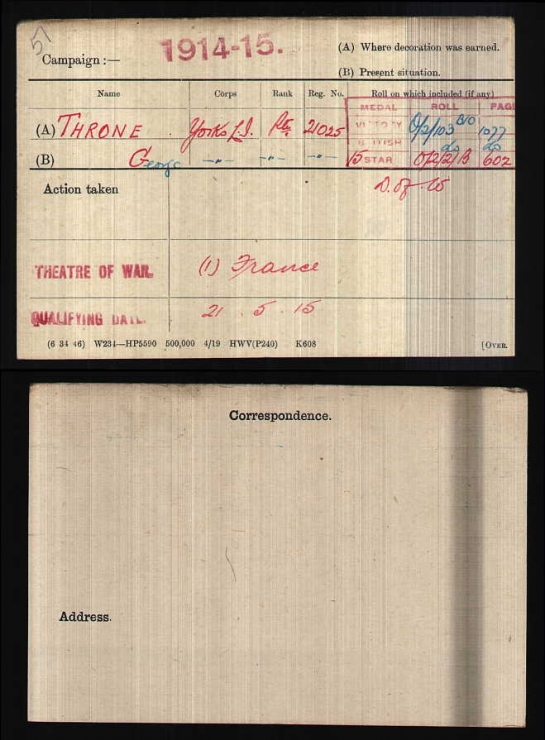 57
Campaign :— 1914-15. (A) Where decoration was earned.
(B) Present situation.
Name Corps Rank Reg. No. Roll on which included (if any)
MEDAL ROLL PAGE
(A) THRONE Yorks L.I. Pte 21025 VICTORY O/2/103 B10 1077
BRITISH do do
(B) George —"— —"— —"— 15 STAR O/2/2/B 602
Action taken D. of W
THEATRE OF WAR. (1) France
QUALIFYING DATE. 21 . 5 . 15
(6 34 46) W234—HP5590 500,000 4/19 HWV(P240) K608 [OVER.
Correspondence.
Address.